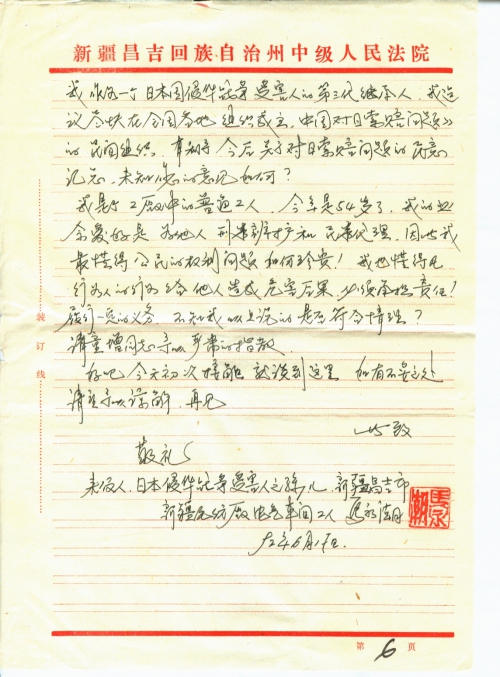 新疆昌吉回族自治州中级人民法院
我作为一个日本国侵华战争受害人的第三代继承人，我建
议尽快在全国各地组织成立，中国对日索赔问题》
的民间组织，掌握今后关于对日索赔问题的民意
记忘，未知您的意见如何？
我是厂工厂中的普通工人，今年是54岁了，我的业
余爱好是为他人刑事辩护和民事代理，因此我
最懂得公民的权利问题如何珍贵！我也懂得凡
行为人的行为给他人造成危害后果，必须承担责任！
履行一定的义务，不知我以上说的是否符合情理？
请童增同志予以严肃的指教。
好吧，今天初次接触就谈到这里，如有不妥之处
请予以谅解，再见
此致
敬礼
来信人：日本侵华战争受害人之孙儿，新疆昌吉市
新疆毛纺厂电气车间工人 马永清
92年6月
装订线
第6页